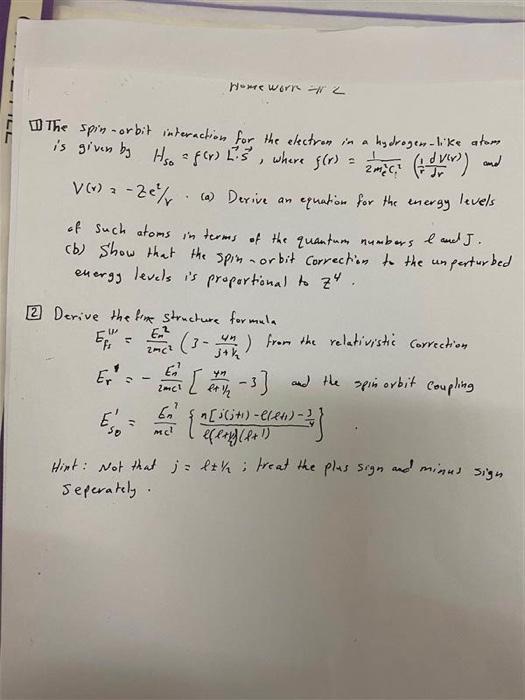 Home Work # 2
1 The spin-orbit interaction for the electron in a hydrogen-like atom
is given by H_so = f(r) L⃗·S⃗, where f(r) = 1/(2m_e²c²) (1/r dV(r)/dr) and
V(r) = -Ze²/r. (a) Derive an equation for the energy levels
of such atoms in terms of the quantum numbers l and J.
(b) Show that the spin-orbit correction to the unperturbed
energy levels is proportional to Z⁴.
2 Derive the fine structure formula
E_fs = E_n²/2mc² (3 - 4n/(j+½)) from the relativistic correction
E_r' = - E_n²/2mc² [4n/(l+½) - 3] and the spin orbit coupling
E_so' = E_n²/mc² { n[j(j+1) - l(l+1) - 3/4] / l(l+½)(l+1) }
Hint: Not that j = l±½ ; treat the plus sign and minus sign
seperately.